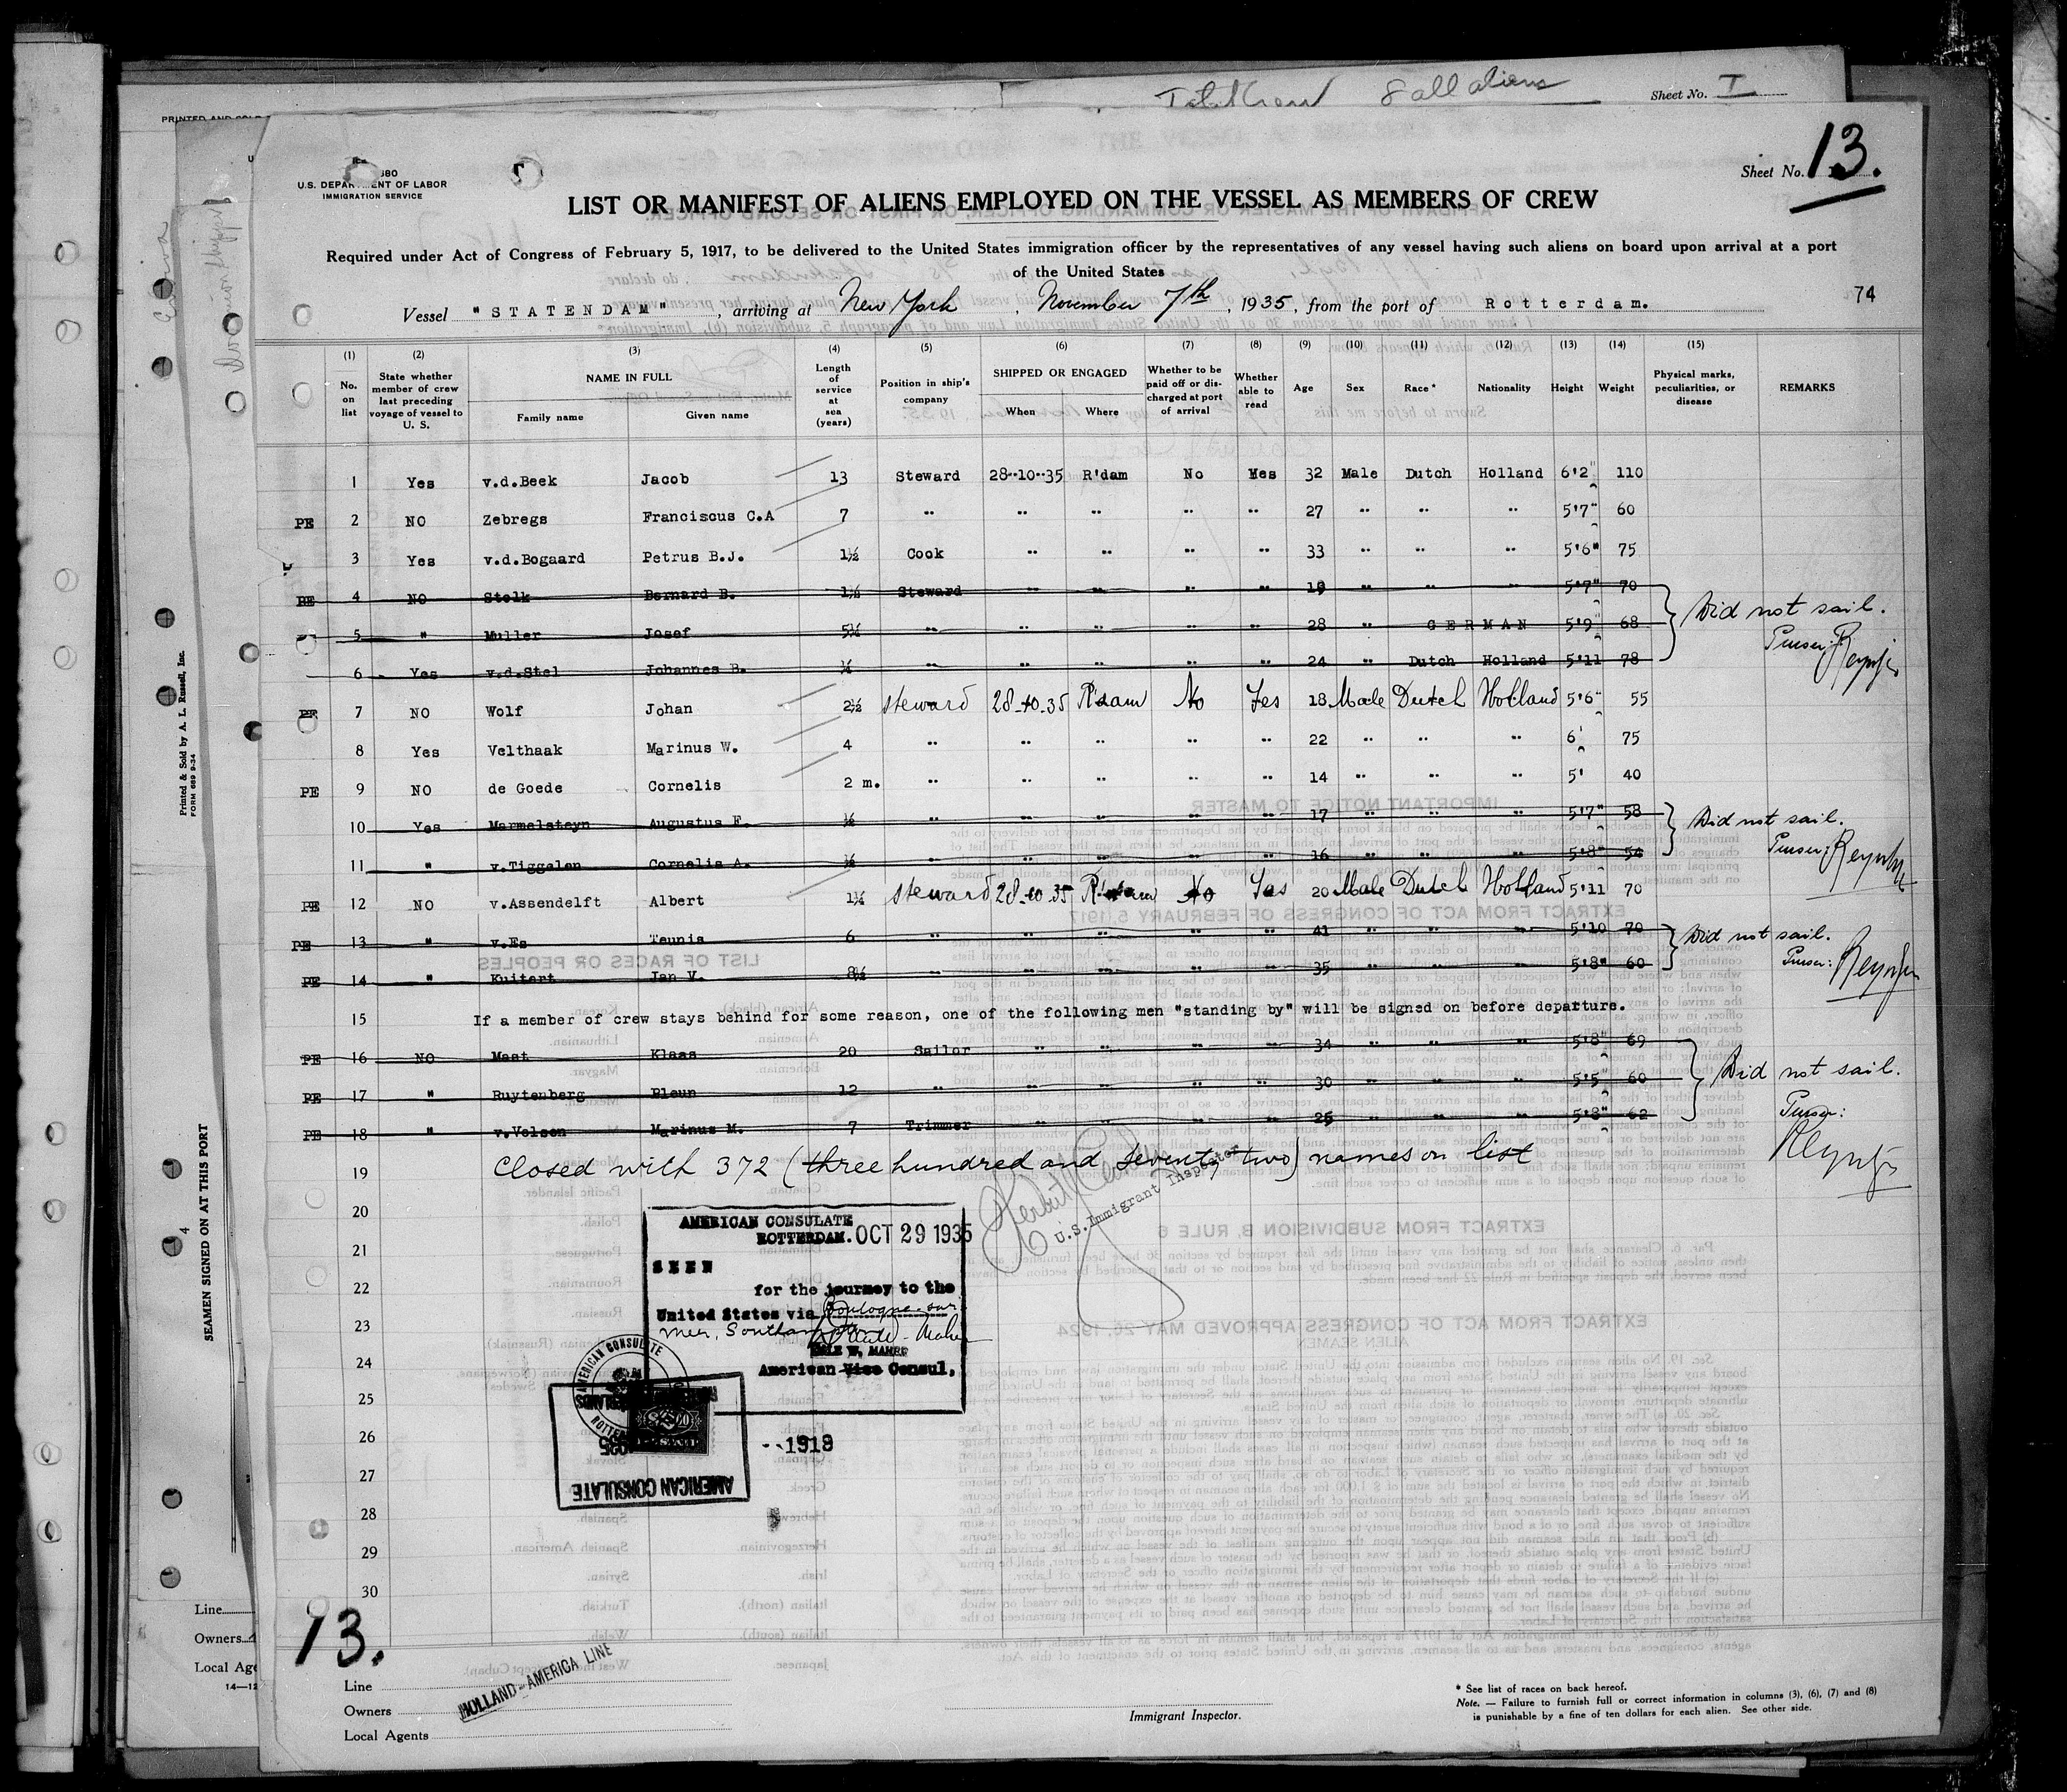 Sheet No. I
8 all aliens
PRINTED AND SOLD
680
U.S. DEPARTMENT OF LABOR
IMMIGRATION SERVICE
Sheet No. 13.
LIST OR MANIFEST OF ALIENS EMPLOYED ON THE VESSEL AS MEMBERS OF CREW
Required under Act of Congress of February 5, 1917, to be delivered to the United States immigration officer by the representatives of any vessel having such aliens on board upon arrival at a port
of the United States
Vessel "STATENDAM", arriving at New York, November 7th, 1935, from the port of Rotterdam.
74
(1) (2) (3) (4) (5) (6) (7) (8) (9) (10) (11) (12) (13) (14) (15)
No. on list
State whether member of crew last preceding voyage of vessel to U. S.
NAME IN FULL
Family name
Given name
Length of service at sea (years)
Position in ship's company
SHIPPED OR ENGAGED
When
Where
Whether to be paid off or discharged at port of arrival
Whether able to read
Age
Sex
Race*
Nationality
Height
Weight
Physical marks, peculiarities, or disease
REMARKS
1 Yes v.d.Beek Jacob 13 Steward 28-10-35 R'dam No Yes 32 Male Dutch Holland 6'2" 110
PE 2 NO Zebregs Franciscus C.A 7 " " " " " 27 " " " 5'7" 60
3 Yes v.d.Bogaard Petrus B.J. 1½ Cook " " " " 33 " " " 5'6" 75
PE 4 NO Stolk Bernard B. 1½ Steward " " " " 19 " " " 5'7" 70
5 " Muller Josef 5½ " " " " " 28 " GERMAN 5'9" 68
6 Yes v.d.Stel Johannes B. ½ " " " " " 24 " Dutch Holland 5'11 78
Did not sail.
Purser:
PE 7 NO Wolf Johan 2½ Steward 28-10-35 R'dam No Yes 18 Male Dutch Holland 5'6" 55
8 Yes Velthaak Marinus W. 4 " " " " " 22 " " " 6' 75
PE 9 NO de Goede Cornelis 2 m. " " " " " 14 " " " 5' 40
10 Yes Marmelsteyn Augustus F. ½ " " " " " 17 " " " 5'7" 58
11 " v.Tiggelen Cornelis A. ½ " " " " " 16 " " " 5'8" 54
Did not sail.
Purser:
PE 12 NO v.Assendelft Albert 1½ Steward 28-10-35 R'dam No Yes 20 Male Dutch Holland 5'11 70
PE 13 " v.Es Teunis 6 " " " " " 41 " " " 5'10 70
PE 14 " Kuitert Jan V. 8½ " " " " " 35 " " " 5'8" 60
Did not sail.
Purser:
15 If a member of crew stays behind for some reason, one of the following men "standing by" will be signed on before departure.
PE 16 NO Mast Klaas 20 Sailor " " " " 34 " " " 5'8" 69
PE 17 " Ruytenberg Pleun 12 " " " " " 30 " " " 5'5" 60
PE 18 " v.Velsen Marinus M. 7 Trimmer " " " " 25 " " " 5'8" 62
Did not sail.
Purser:
19 Closed with 372 (three hundred and seventy two) names on list
U.S. Immigrant Inspector
20
21
22
23
24
25
26
27
28
29
30
AMERICAN CONSULATE
ROTTERDAM. OCT 29 1935
SEEN
for the journey to the
United States via Boulogne-sur-
mer, Southampton
DALE W. MAHER
American Vice Consul.
AMERICAN CONSULATE
AMERICAN CONSULATE
--1918
13.
Line
HOLLAND-AMERICA LINE
Owners
Local Agents
Immigrant Inspector.
* See list of races on back hereof.
Note. — Failure to furnish full or correct information in columns (3), (6), (7) and (8)
is punishable by a fine of ten dollars for each alien. See other side.
Printed & Sold by A. L. Russell, Inc.
FORM 669 9-34
SEAMEN SIGNED ON AT THIS PORT
4
Line
Owners
Local Age
14—12